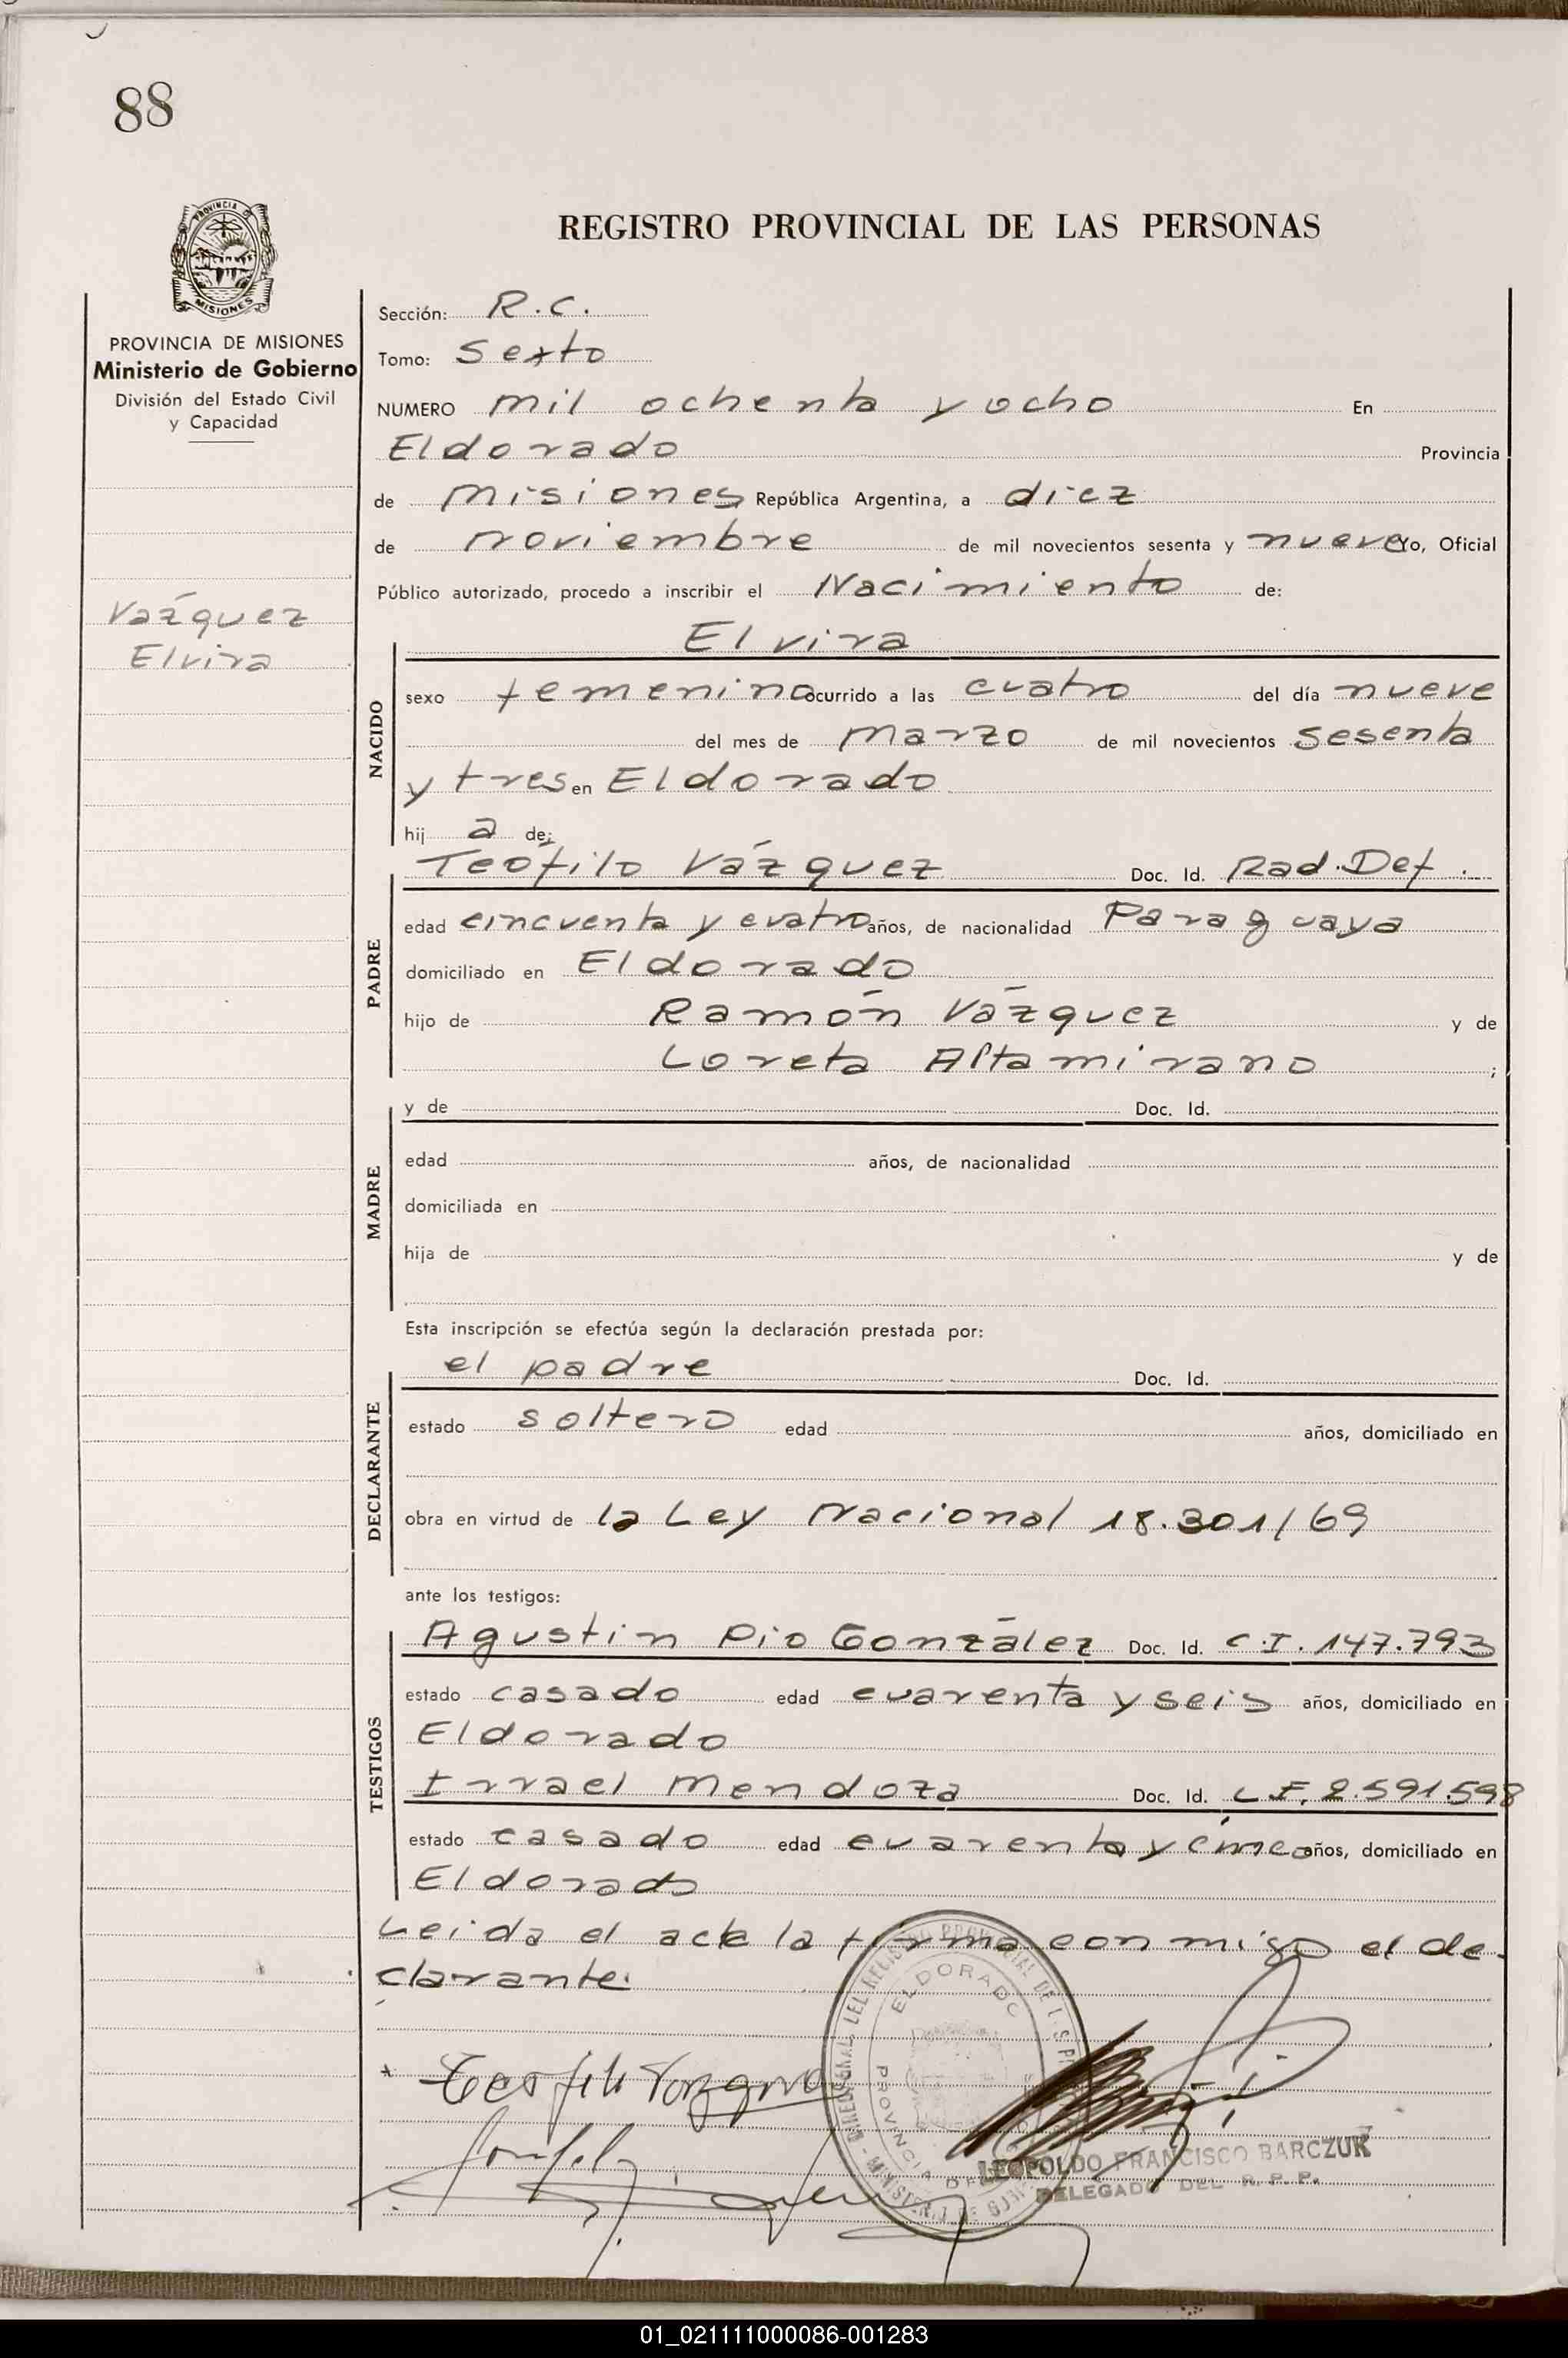 88
REGISTRO PROVINCIAL DE LAS PERSONAS
PROVINCIA DE
MISIONES
PROVINCIA DE MISIONES
Ministerio de Gobierno
División del Estado Civil
y Capacidad
Vázquez
Elvira
Sección: R.C.
Tomo: Sexto
NUMERO mil ochenta y ocho En
Eldorado Provincia
de Misiones República Argentina, a diez
de noviembre de mil novecientos sesenta y nueve Yo, Oficial
Público autorizado, procedo a inscribir el Nacimiento de:
Elvira
NACIDO
sexo femenino ocurrido a las cuatro del día nueve
del mes de marzo de mil novecientos sesenta
y tres en Eldorado
hij a de:
PADRE
Teófilo Vázquez Doc. Id. Rad. Def.
edad cincuenta y cuatro años, de nacionalidad Paraguaya
domiciliado en Eldorado
hijo de Ramón Vázquez y de
Loreta Altamirano ;
MADRE
y de Doc. Id.
edad años, de nacionalidad
domiciliada en
hija de y de
Esta inscripción se efectúa según la declaración prestada por:
DECLARANTE
el padre Doc. Id.
estado soltero edad años, domiciliado en
obra en virtud de la Ley Nacional 18.301/69
ante los testigos:
TESTIGOS
Agustin Pio González Doc. Id. C.I. 147.793
estado casado edad cuarenta y seis años, domiciliado en
Eldorado
Irrael Mendoza Doc. Id. L.E. 2.591.598
estado casado edad cuarenta y cinco años, domiciliado en
Eldorado
Leida el acta la firma conmigo el de-
clarante.
Teofilo Vazquez
ELDORADO
PROVINCIA DE
LEOPOLDO FRANCISCO BARCZUK
DELEGADO DEL R.P.P.
01_021111000086-001283